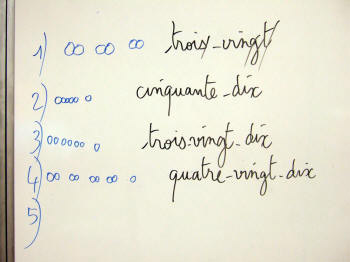 1) oo oo oo trois-vingt
2) ooooo o cinquante-dix
3) oooooo o trois-vingt-dix
4) oo oo oo oo o quatre-vingt-dix
5)